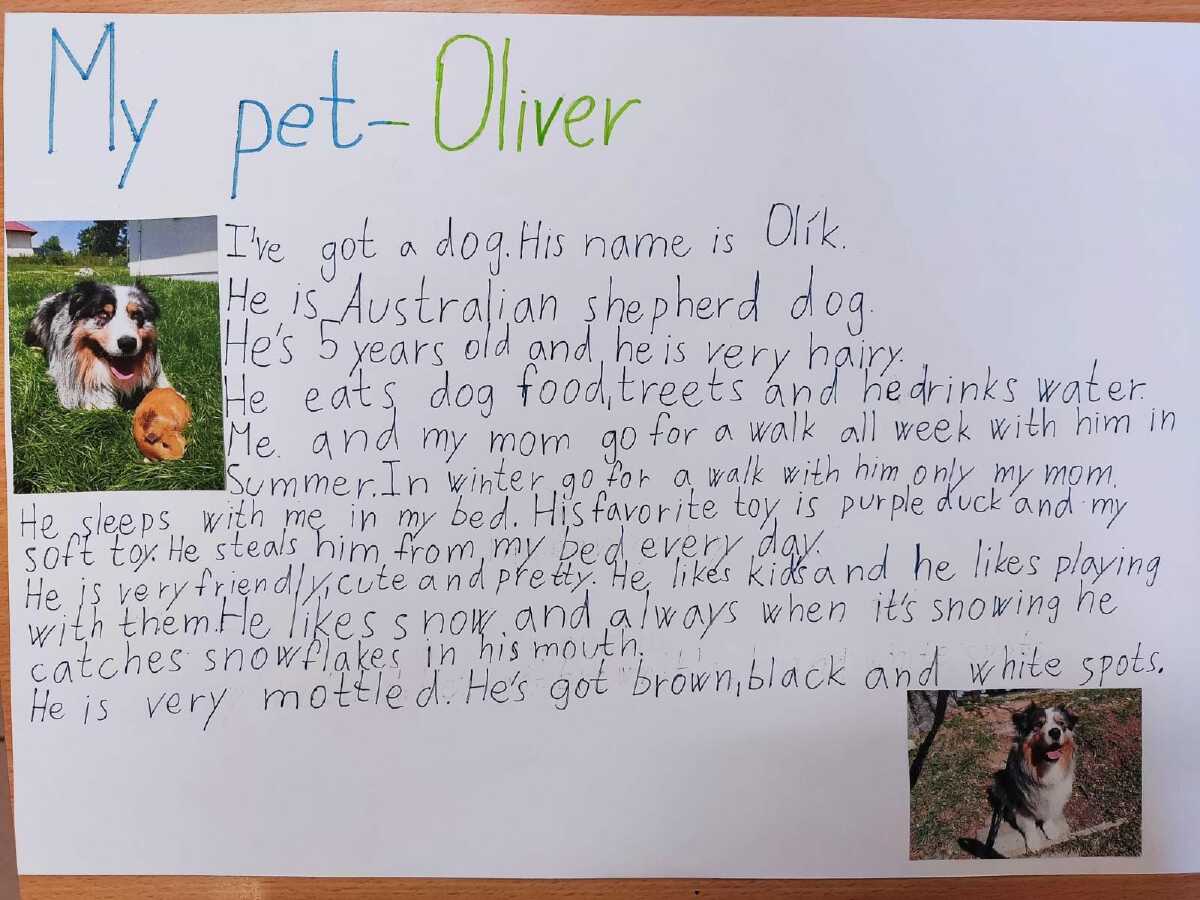 My pet - Oliver
I've got a dog. His name is Olík.
He is Australian shepherd dog.
He's 5 years old and he is very hairy.
He eats dog food, treets and he drinks water.
Me and my mom go for a walk all week with him in
Summer. In winter go for a walk with him only my mom.
He sleeps with me in my bed. His favorite toy is purple duck and my
soft toy. He steals him from my bed every day.
He is very friendly, cute and pretty. He likes kids and he likes playing
with them. He likes snow and always when it's snowing he
catches snowflakes in his mouth.
He is very mottled. He's got brown, black and white spots.